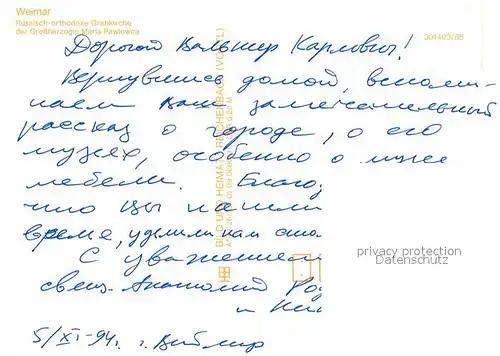 Weimar
Russisch-orthodoxe Grabkirche
der Großherzogin Maria Pawlowna
304403/88
Дорогой Вальтер Карлович!
Вернувшись домой, вспоми-
наем Ваш замечательный
рассказ о городе, о его
музеях, особенно о музее
мебели. Благо
что Вы нашли
время, уделили нам
С уважением
свящ. Анатолий Род
и
5/XI-94г. г. Веймар
BILD UND HEIMAT REICHENBACH (VOGTL)
privacy protection
Datenschutz